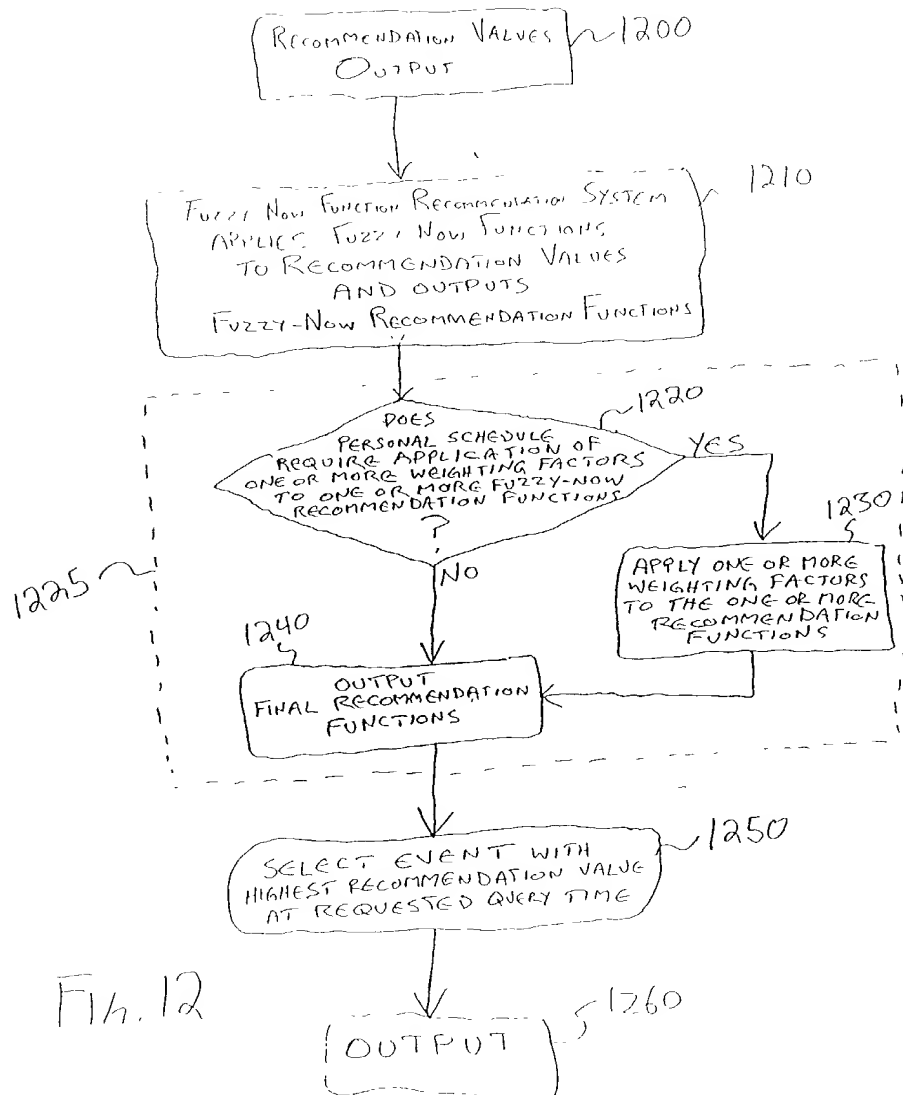 RECOMMENDATION VALUES
OUTPUT
1200
FUZZY NOW FUNCTION RECOMMENDATION SYSTEM
APPLIES FUZZY NOW FUNCTIONS
TO RECOMMENDATION VALUES
AND OUTPUTS
FUZZY-NOW RECOMMENDATION FUNCTIONS
1210
DOES
PERSONAL SCHEDULE
REQUIRE APPLICATION OF
ONE OR MORE WEIGHTING FACTORS
TO ONE OR MORE FUZZY-NOW
RECOMMENDATION FUNCTIONS
?
1220
YES
NO
1225
1230
APPLY ONE OR MORE
WEIGHTING FACTORS
TO THE ONE OR MORE
RECOMMENDATION
FUNCTIONS
1240
OUTPUT
FINAL RECOMMENDATION
FUNCTIONS
1250
SELECT EVENT WITH
HIGHEST RECOMMENDATION VALUE
AT REQUESTED QUERY TIME
FIG. 12
OUTPUT
1260